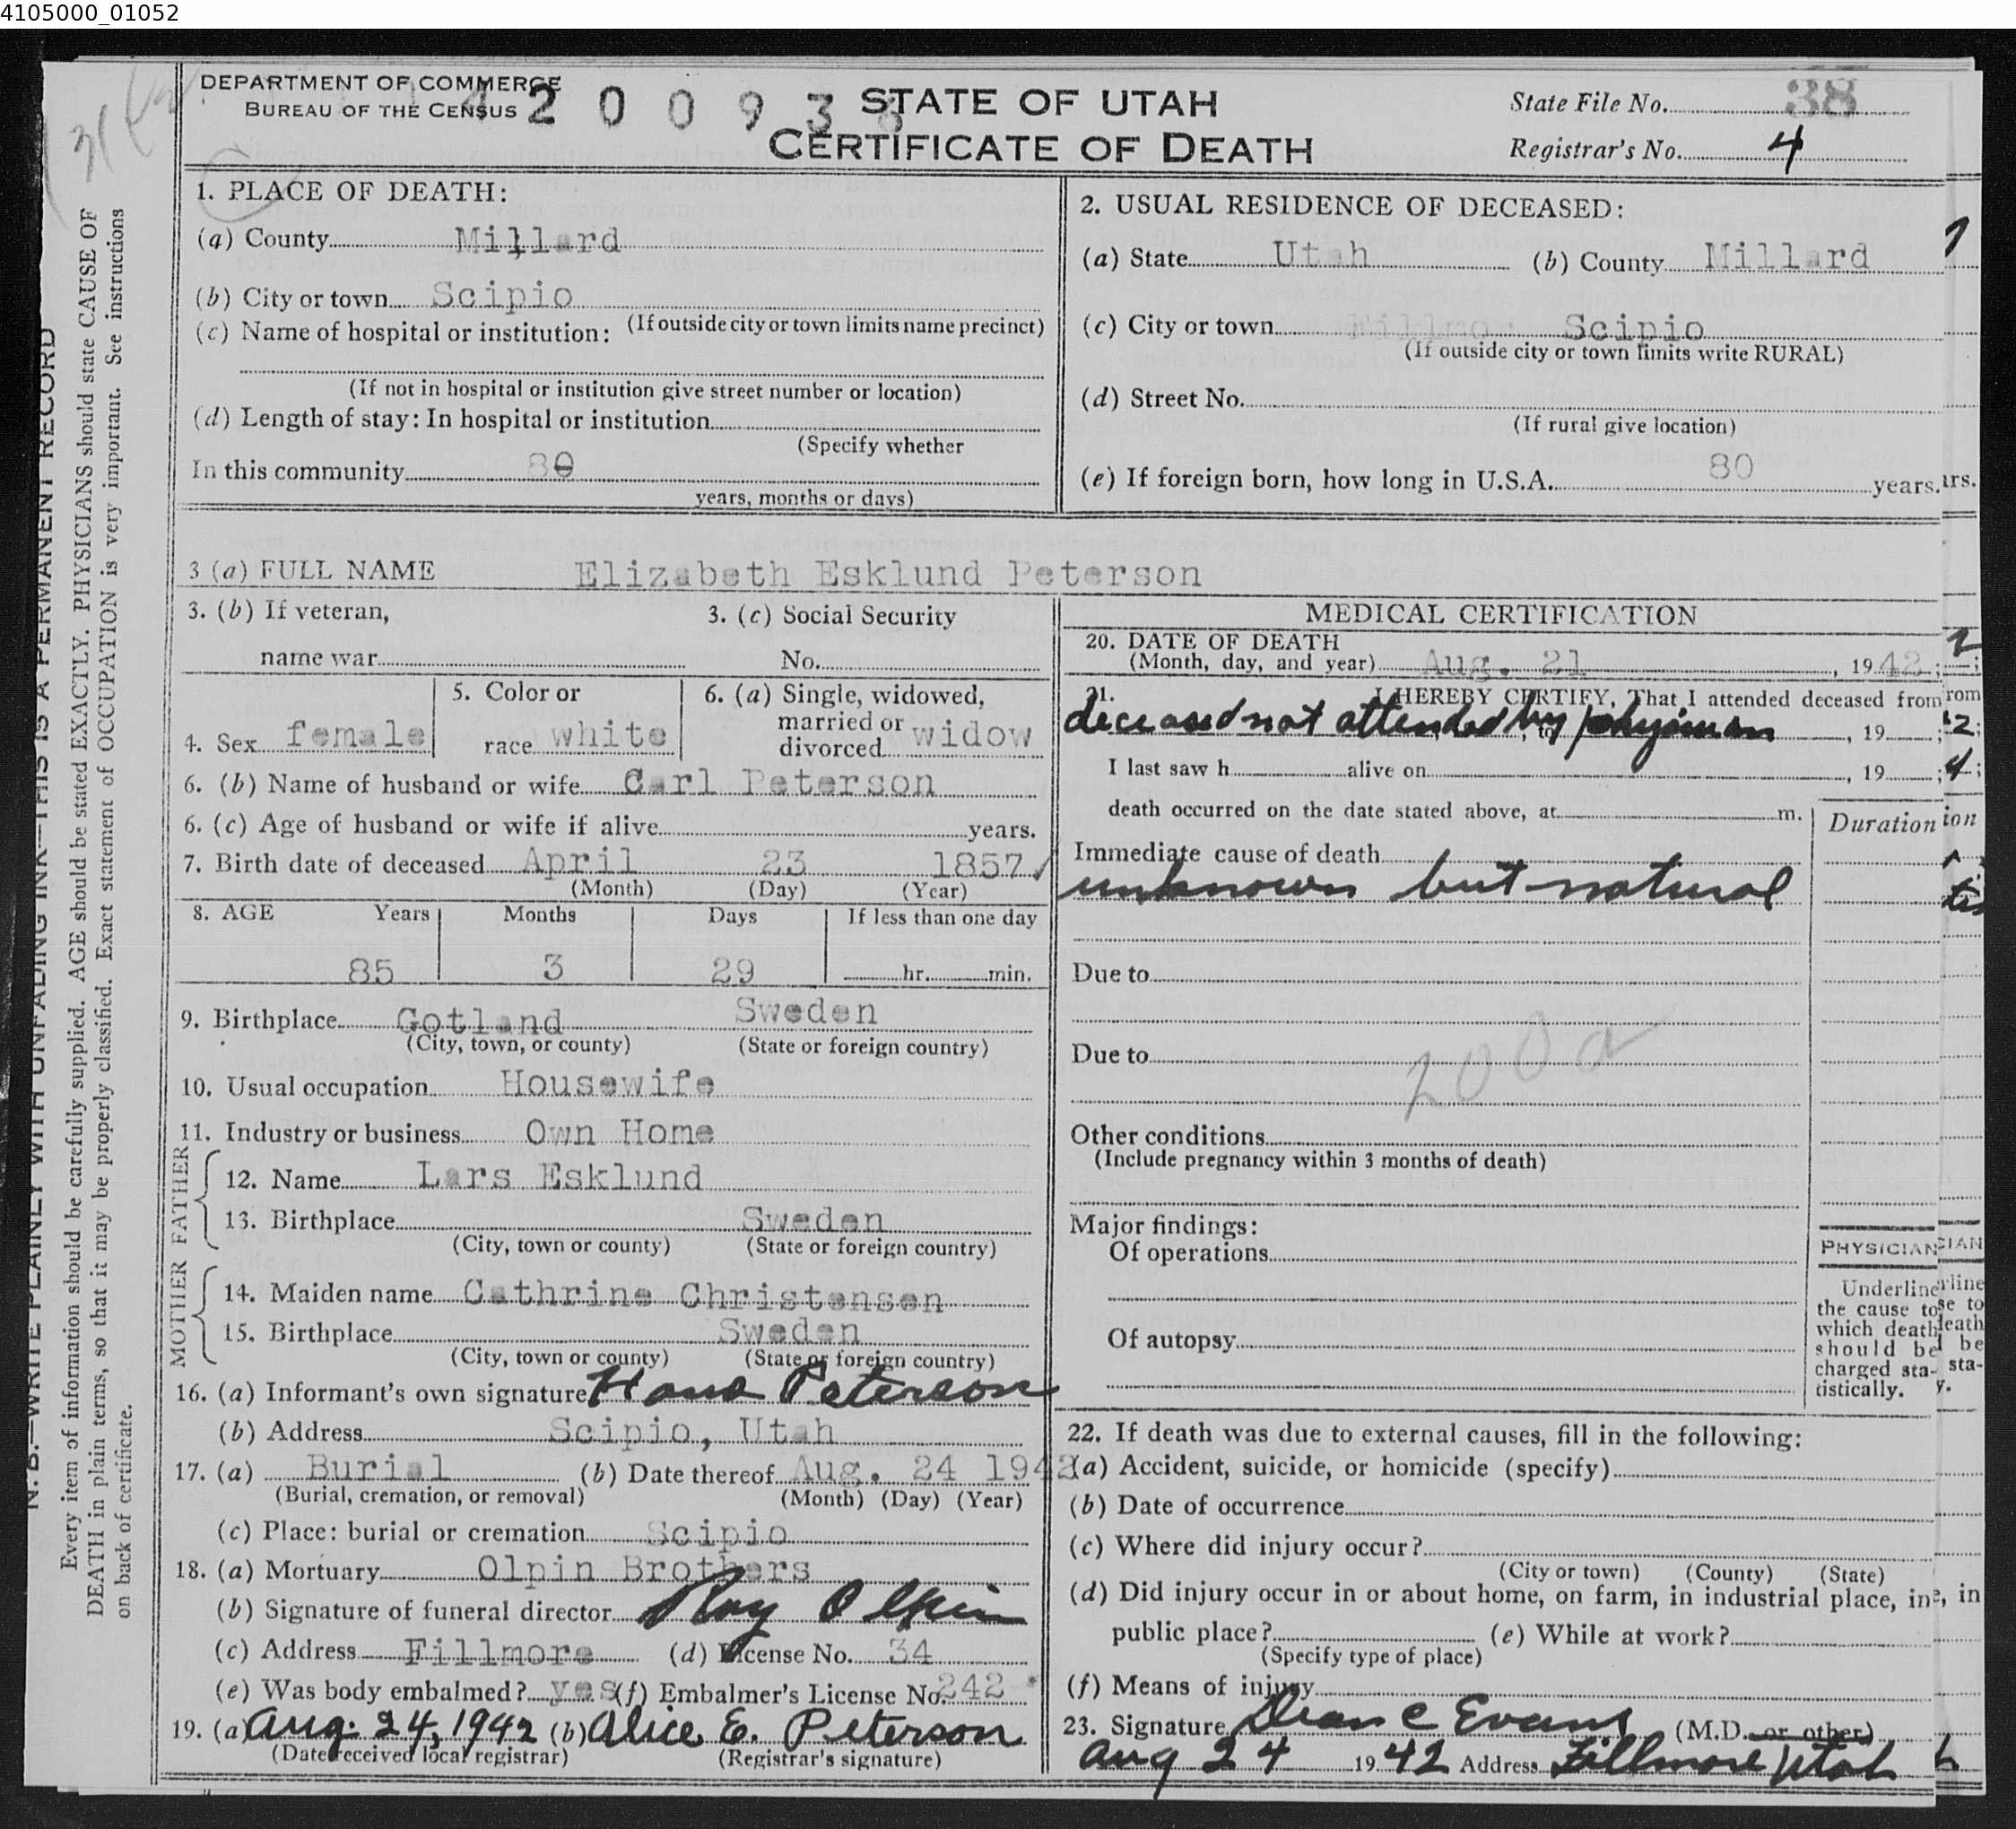 4105000_01052
DEPARTMENT OF COMMERCE
BUREAU OF THE CENSUS
4 2 0 0 9 3 8
STATE OF UTAH
CERTIFICATE OF DEATH
State File No. 38
Registrar's No. 4
N. B.—WRITE PLAINLY WITH UNFADING INK—THIS IS A PERMANENT RECORD
Every item of information should be carefully supplied. AGE should be stated EXACTLY. PHYSICIANS should state CAUSE OF
DEATH in plain terms, so that it may be properly classified. Exact statement of OCCUPATION is very important. See instructions
on back of certificate.
1. PLACE OF DEATH:
(a) County Millard
(b) City or town Scipio
(If outside city or town limits name precinct)
(c) Name of hospital or institution:
(If not in hospital or institution give street number or location)
(d) Length of stay: In hospital or institution
(Specify whether
In this community 80
years, months or days)
2. USUAL RESIDENCE OF DECEASED:
(a) State Utah (b) County Millard
(c) City or town Scipio
(If outside city or town limits write RURAL)
(d) Street No.
(If rural give location)
(e) If foreign born, how long in U.S.A. 80 years.
3 (a) FULL NAME Elizabeth Esklund Peterson
3. (b) If veteran,
name war
3. (c) Social Security
No.
4. Sex female
5. Color or
race white
6. (a) Single, widowed,
married or
divorced widow
6. (b) Name of husband or wife Carl Peterson
6. (c) Age of husband or wife if alive years.
7. Birth date of deceased April 23 1857
(Month) (Day) (Year)
8. AGE Years Months Days If less than one day
85 3 29 hr. min.
9. Birthplace Gotland Sweden
(City, town, or county) (State or foreign country)
10. Usual occupation Housewife
11. Industry or business Own Home
FATHER
12. Name Lars Esklund
13. Birthplace Sweden
(City, town or county) (State or foreign country)
MOTHER
14. Maiden name Cathrine Christensen
15. Birthplace Sweden
(City, town or county) (State or foreign country)
16. (a) Informant's own signature Hans Peterson
(b) Address Scipio, Utah
17. (a) Burial (b) Date thereof Aug. 24 1942
(Burial, cremation, or removal) (Month) (Day) (Year)
(c) Place: burial or cremation Scipio
18. (a) Mortuary Olpin Brothers
(b) Signature of funeral director Roy Olpin
(c) Address Fillmore (d) License No. 34
(e) Was body embalmed? yes (f) Embalmer's License No. 242
19. (a) Aug. 24, 1942 (b) Alice E. Peterson
(Date received local registrar) (Registrar's signature)
MEDICAL CERTIFICATION
20. DATE OF DEATH
(Month, day, and year) Aug. 21, 1942;
21. I HEREBY CERTIFY, That I attended deceased from
deceased not attended by physician, to, 19
I last saw h alive on, 19;
death occurred on the date stated above, at m.
Duration
Immediate cause of death
unknown but natural
Due to
Due to
200a
Other conditions
(Include pregnancy within 3 months of death)
Major findings:
Of operations
Of autopsy
PHYSICIAN
Underline
the cause to
which death
should be
charged sta-
tistically.
22. If death was due to external causes, fill in the following:
(a) Accident, suicide, or homicide (specify)
(b) Date of occurrence
(c) Where did injury occur?
(City or town) (County) (State)
(d) Did injury occur in or about home, on farm, in industrial place, in
public place? (e) While at work?
(Specify type of place)
(f) Means of injury
23. Signature Dean C Evans (M.D. or other)
Aug 24 1942 Address Fillmore Utah